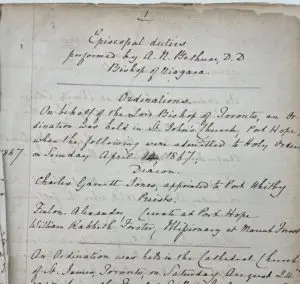 1
Episcopal duties
performed by A. N. Bethune, D. D.
Bishop of Niagara.
Ordinations.
On behalf of the Lord Bishop of Toronto, an Or-
dination was held in St. John's Church, Port Hope
when the following were admitted to Holy Orders
1867
on Sunday April 14, 1867.
Deacon.
Charles Garrett Jones, appointed to Port Whitby
Priests.
Finlon Alexander Curate at Port Hope
William Forster, Missionary at Mount Forest
An Ordination was held in the Cathedral Church
of St. James, Toronto, on Saturday August 24